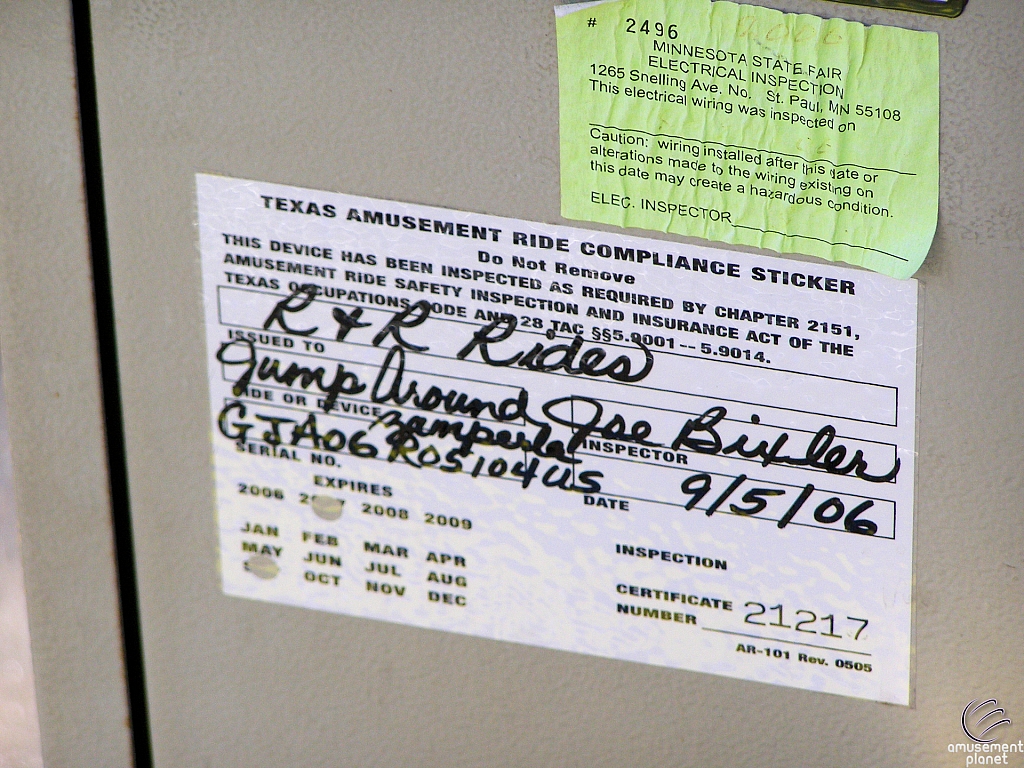 # 2496
MINNESOTA STATE FAIR
ELECTRICAL INSPECTION
1265 Snelling Ave. No. St. Paul, MN 55108
This electrical wiring was inspected on
Caution: wiring installed after this date or
alterations made to the wiring existing on
this date may create a hazardous condition.
ELEC. INSPECTOR
TEXAS AMUSEMENT RIDE COMPLIANCE STICKER
Do Not Remove
THIS DEVICE HAS BEEN INSPECTED AS REQUIRED BY CHAPTER 2151,
AMUSEMENT RIDE SAFETY INSPECTION AND INSURANCE ACT OF THE
TEXAS OCCUPATIONS CODE AND 28 TAC §§5.9001 -- 5.9014.
R & R Rides
ISSUED TO
Jump Around Joe Bixler
RIDE OR DEVICE Zamperla INSPECTOR
GJA06R05104US 9/5/06
SERIAL NO. DATE
EXPIRES
2006 2008 2009
JAN FEB MAR APR
MAY JUN JUL AUG
OCT NOV DEC
INSPECTION
CERTIFICATE
NUMBER 21217
AR-101 Rev. 0505
amusement
planet